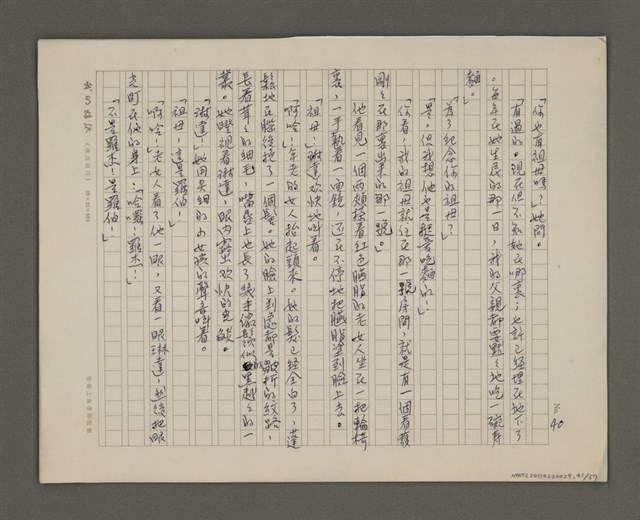 No. 40
「你也有祖母嗎？」她問。
「有過的。現在但不知她在哪裏；也許已經埋在地下了
。每年在她生辰的那一日，我的父親都要點點地吃一碗壽
麵。」
「為了紀念你的祖母？」
「是。但我想他也是挺愛吃麵的！」
「你看，我的祖母就住在那一號房間，就是有一個看護
剛剛在那裏出來的那一號。」
他看見一個兩頰搽着紅色胭脂的老女人坐在一把輪椅
裏，一手執着一面鏡，還在不停地把胭脂塗到臉上去。
「祖母！」琳達歡快地叫着。
「啊哈！」年老的女人抬起頭來。她的髮已經全白了，蓬
鬆地在腦後挽了一個髻。她的臉上到處都是皺折的紋路，
長着茸茸的細毛，嘴唇上也長了幾莖像鬍似的
叢。她瞪視着琳達，眼內露出歡快的光燄。
「琳達！」她用尖細的小女孩的聲音叫着。
「祖母！這是羅伯！」
「啊哈！」老女人看了他一眼，又看一眼琳達，然後把眼
光盯在他的身上：「哈囉！羅杰！」
「不是羅杰！是羅伯！」
NMTL20110280029, 41/57